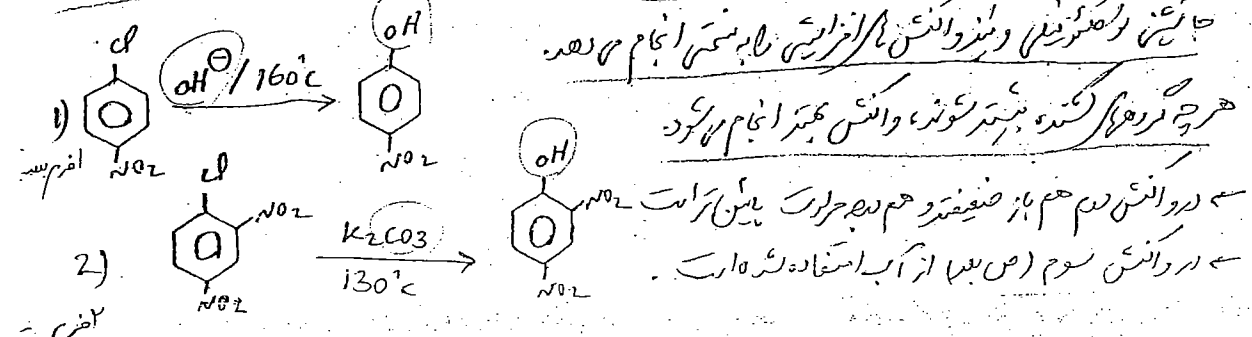 جانشینی نوکلئوفیلی و نیز واکنش های افزایشی را به سختی انجام می دهد.
هر چه گروههای کشنده بیشتر شوند، واکنش بهتر انجام می شود.
← در واکنش دوم هم باز ضعیفتر و هم درجه حرارت پایین تر است
← در واکنش سوم (ص بعد) از آب استفاده شده است.
1) Cl OH⊖ / 160°C OH
NO2 NO2
2) Cl NO2 K2CO3 OH NO2
130°C
NO2 NO2